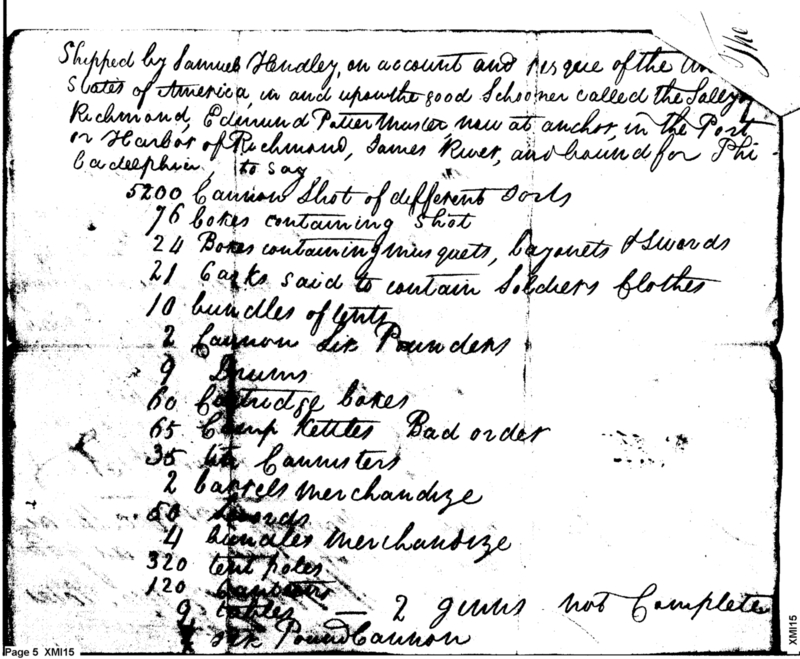 The
Shipped by Samuel Hendley, on account and resque of the Un
States of America, in and upon the good Schooner called the Sally of
Richmond, Edmund Potter Master, now at anchor, in the Port
or Harbor of Richmond, James River, and bound for Phi
ladelphia, to say
5200 Cannon Shot of different Sorts
76 boxes containing Shot
24 Boxes containing musquets, bayonets & Swords
21 Casks said to contain Soldiers Clothes
10 bundles of tents
2 Cannon Six Pounders
9 Drums
60 Cartridge boxes
65 Camp Kettles Bad order
35 tin Cannisters
2 barrels Merchandize
50 Swords
4 bundles Merchandize
320 tent poles
120 Canteens
9 — 2 guns not Complete
Six Pound Cannon
Page 5 XMI15
XMI15